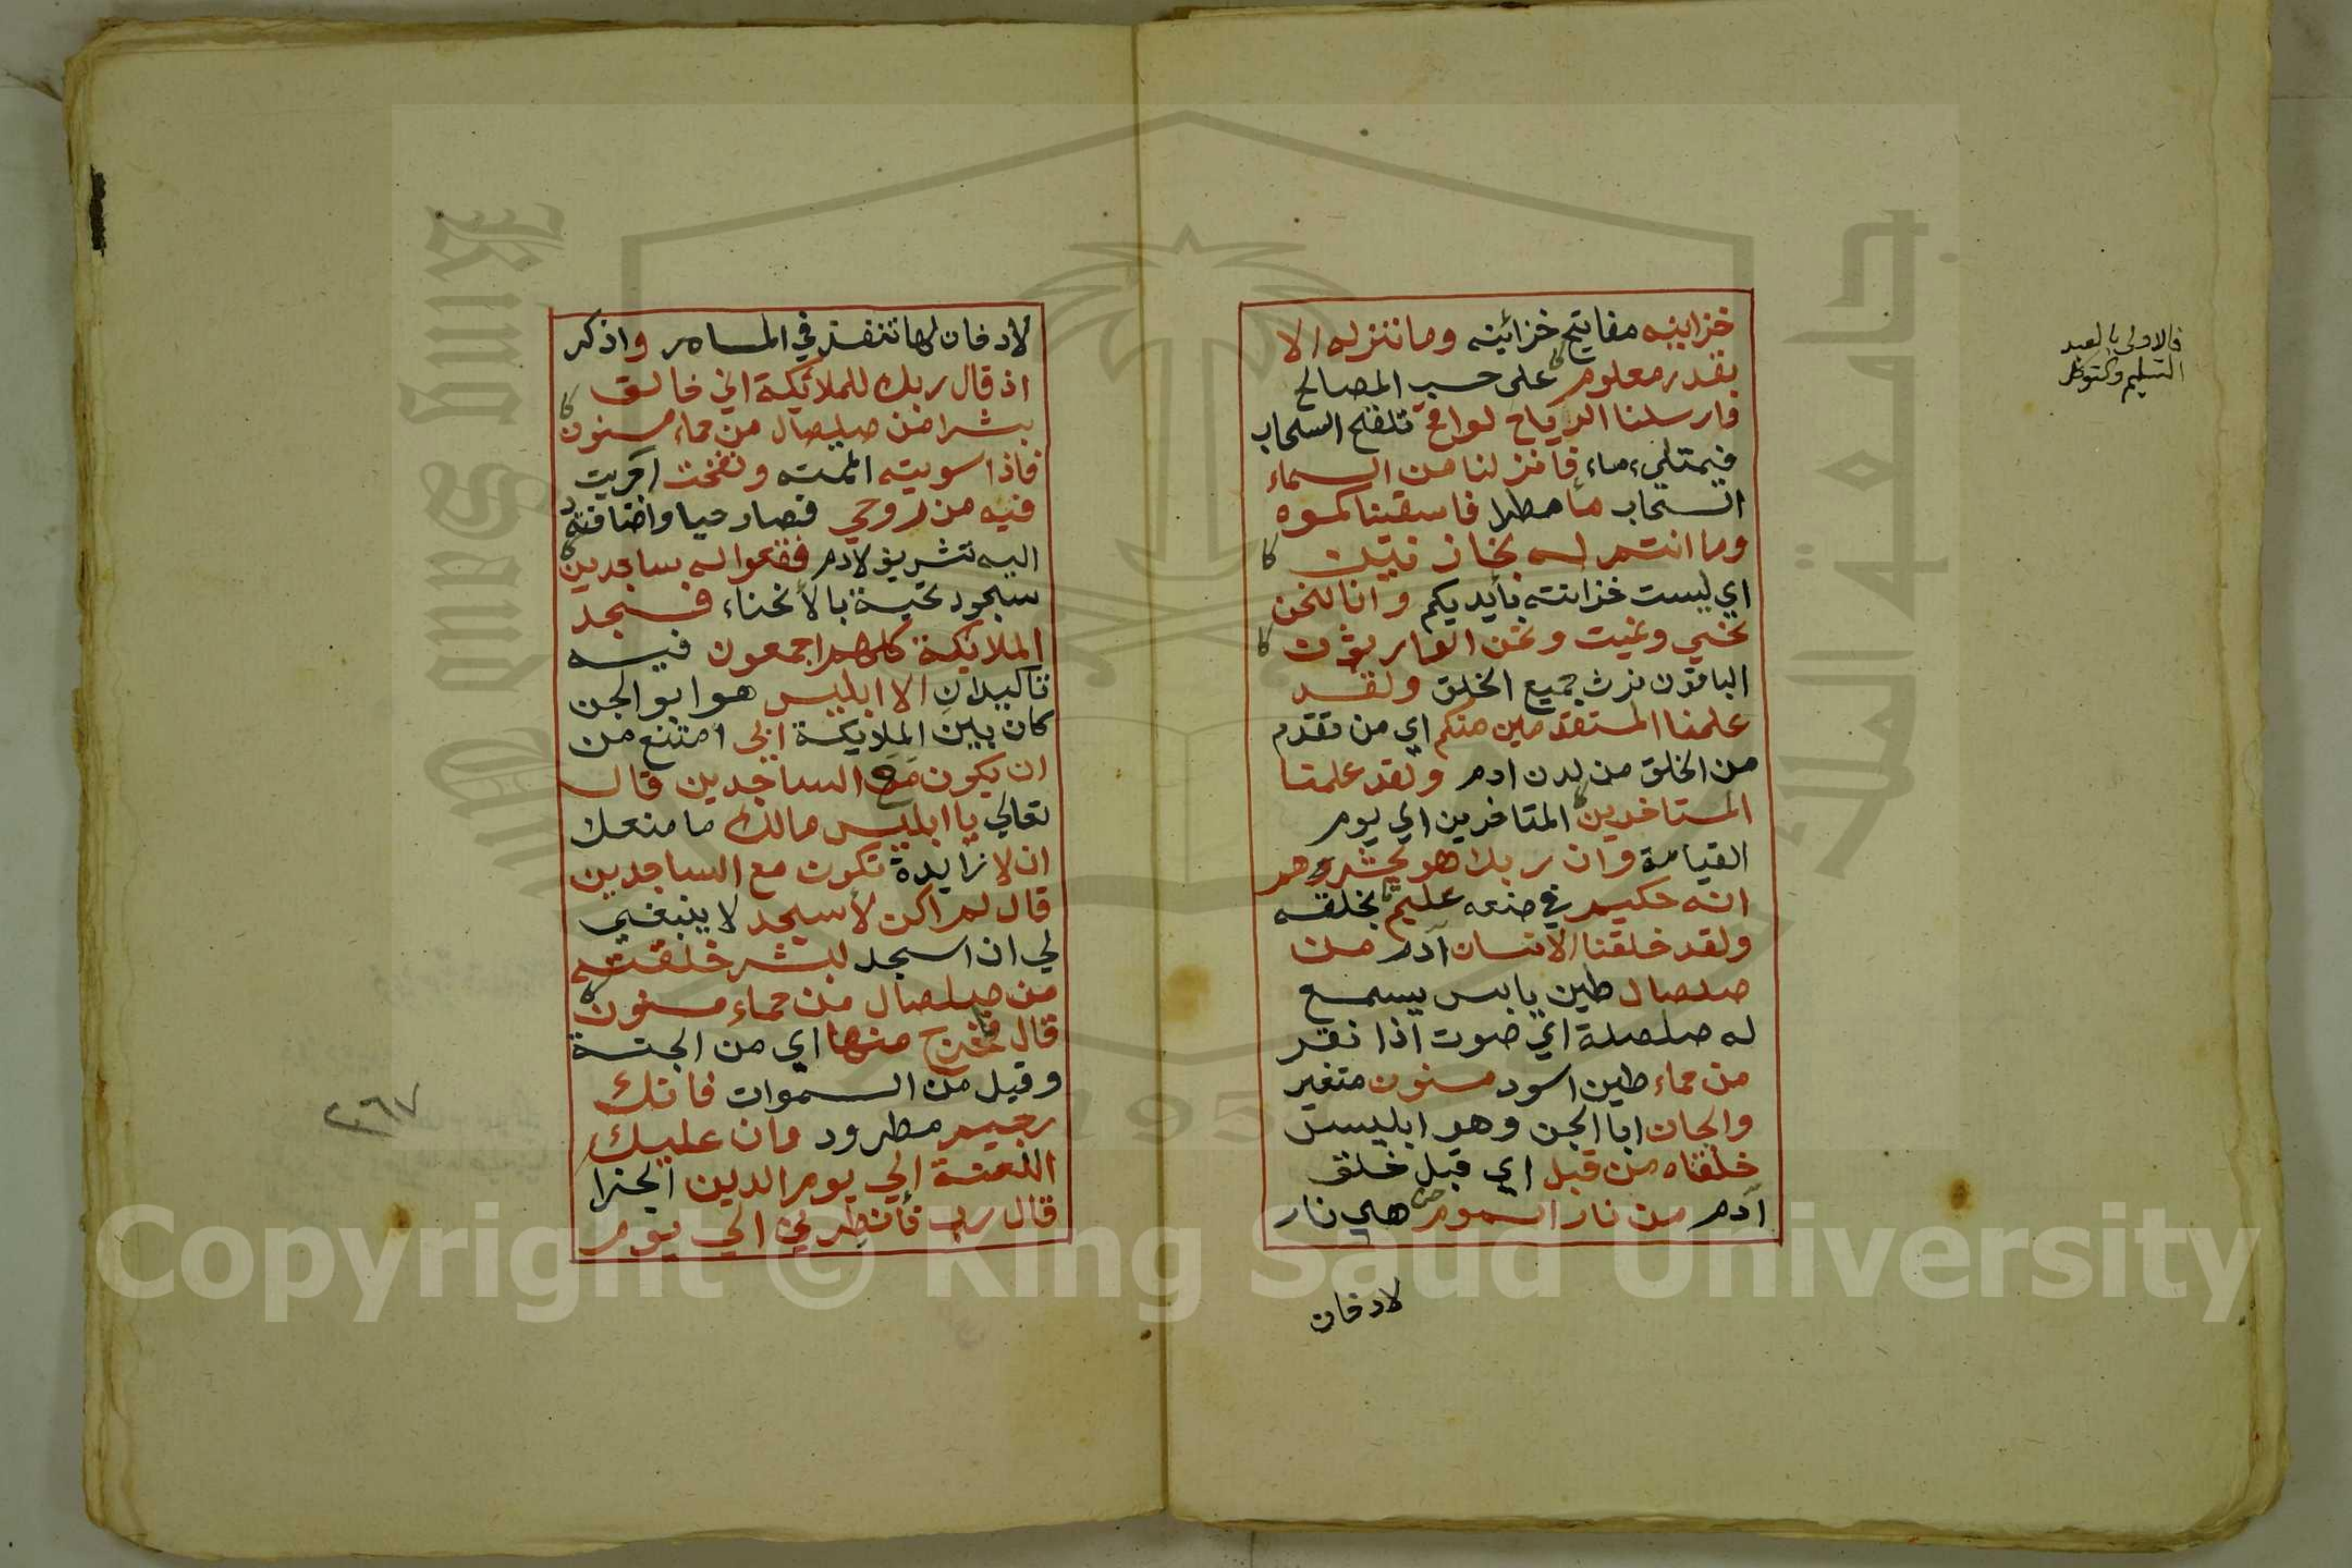 خزاينه مفاتيح خزائينه وما ننزله الا
بقدر معلوم على حسب المصالح
وارسلنا الرياح لواقح تلقح السحاب
فيمتلي ماء فانزلنا من السماء
السحاب ماء مطرا فاسقيناكموه
وما انتم له بخازنين
اي ليست خزائنه بايديكم وانا لنحن
نحيي ونميت ونحن الوارثون
الباقون نرث جميع الخلق ولقد
علمنا المستقدمين منكم اي من تقدم
من الخلق من لدن ادم ولقد علمنا
المستاخرين المتاخرين الي يوم
القيامة وان ربك هو يحشرهم
انه حكيم في صنعه عليم بخلقه
ولقد خلقنا الانسان آدم من
صلصال طين يابس يسمع
له صلصلة اي صوت اذا نقر
من حماء طين اسود مسنون متغير
والجان ابا الجن وهو ابليس
خلقناه من قبل اي قبل خلق
آدم من نار السموم هي نار
لادخان
فالاولى بالعبد
التسليم والتوكل
لادخان لها تنفذ في المسام واذكر
اذ قال ربك للملائكة اني خالق
بشرا من صلصال من حماء مسنون
فاذا سويته اتممته ونفخت اجريت
فيه من روحي فصار حيا واضافته
اليه تشريف لادم فقعوا له ساجدين
سجود تحية بالانحناء فسجد
الملائكة كلهم اجمعون فيه
تاكيدان الا ابليس هو ابو الجن
كان بين الملايكة ابي امتنع من
ان يكون مع الساجدين قال
تعالي يا ابليس مالك ما منعك
ان لا زايدة تكون مع الساجدين
قال لم اكن لأسجد لا ينبغي
لي ان اسجد لبشر خلقته
من صلصال من حماء مسنون
قال فاخرج منها اي من الجنة
وقيل من السموات فانك
رجيم مطرود وان عليك
اللعنة الي يوم الدين الجزا
قال رب فأنظرني الي يوم
٢٦٧
جامعة الملك سعود
King Saud University
1957
Copyright © King Saud University